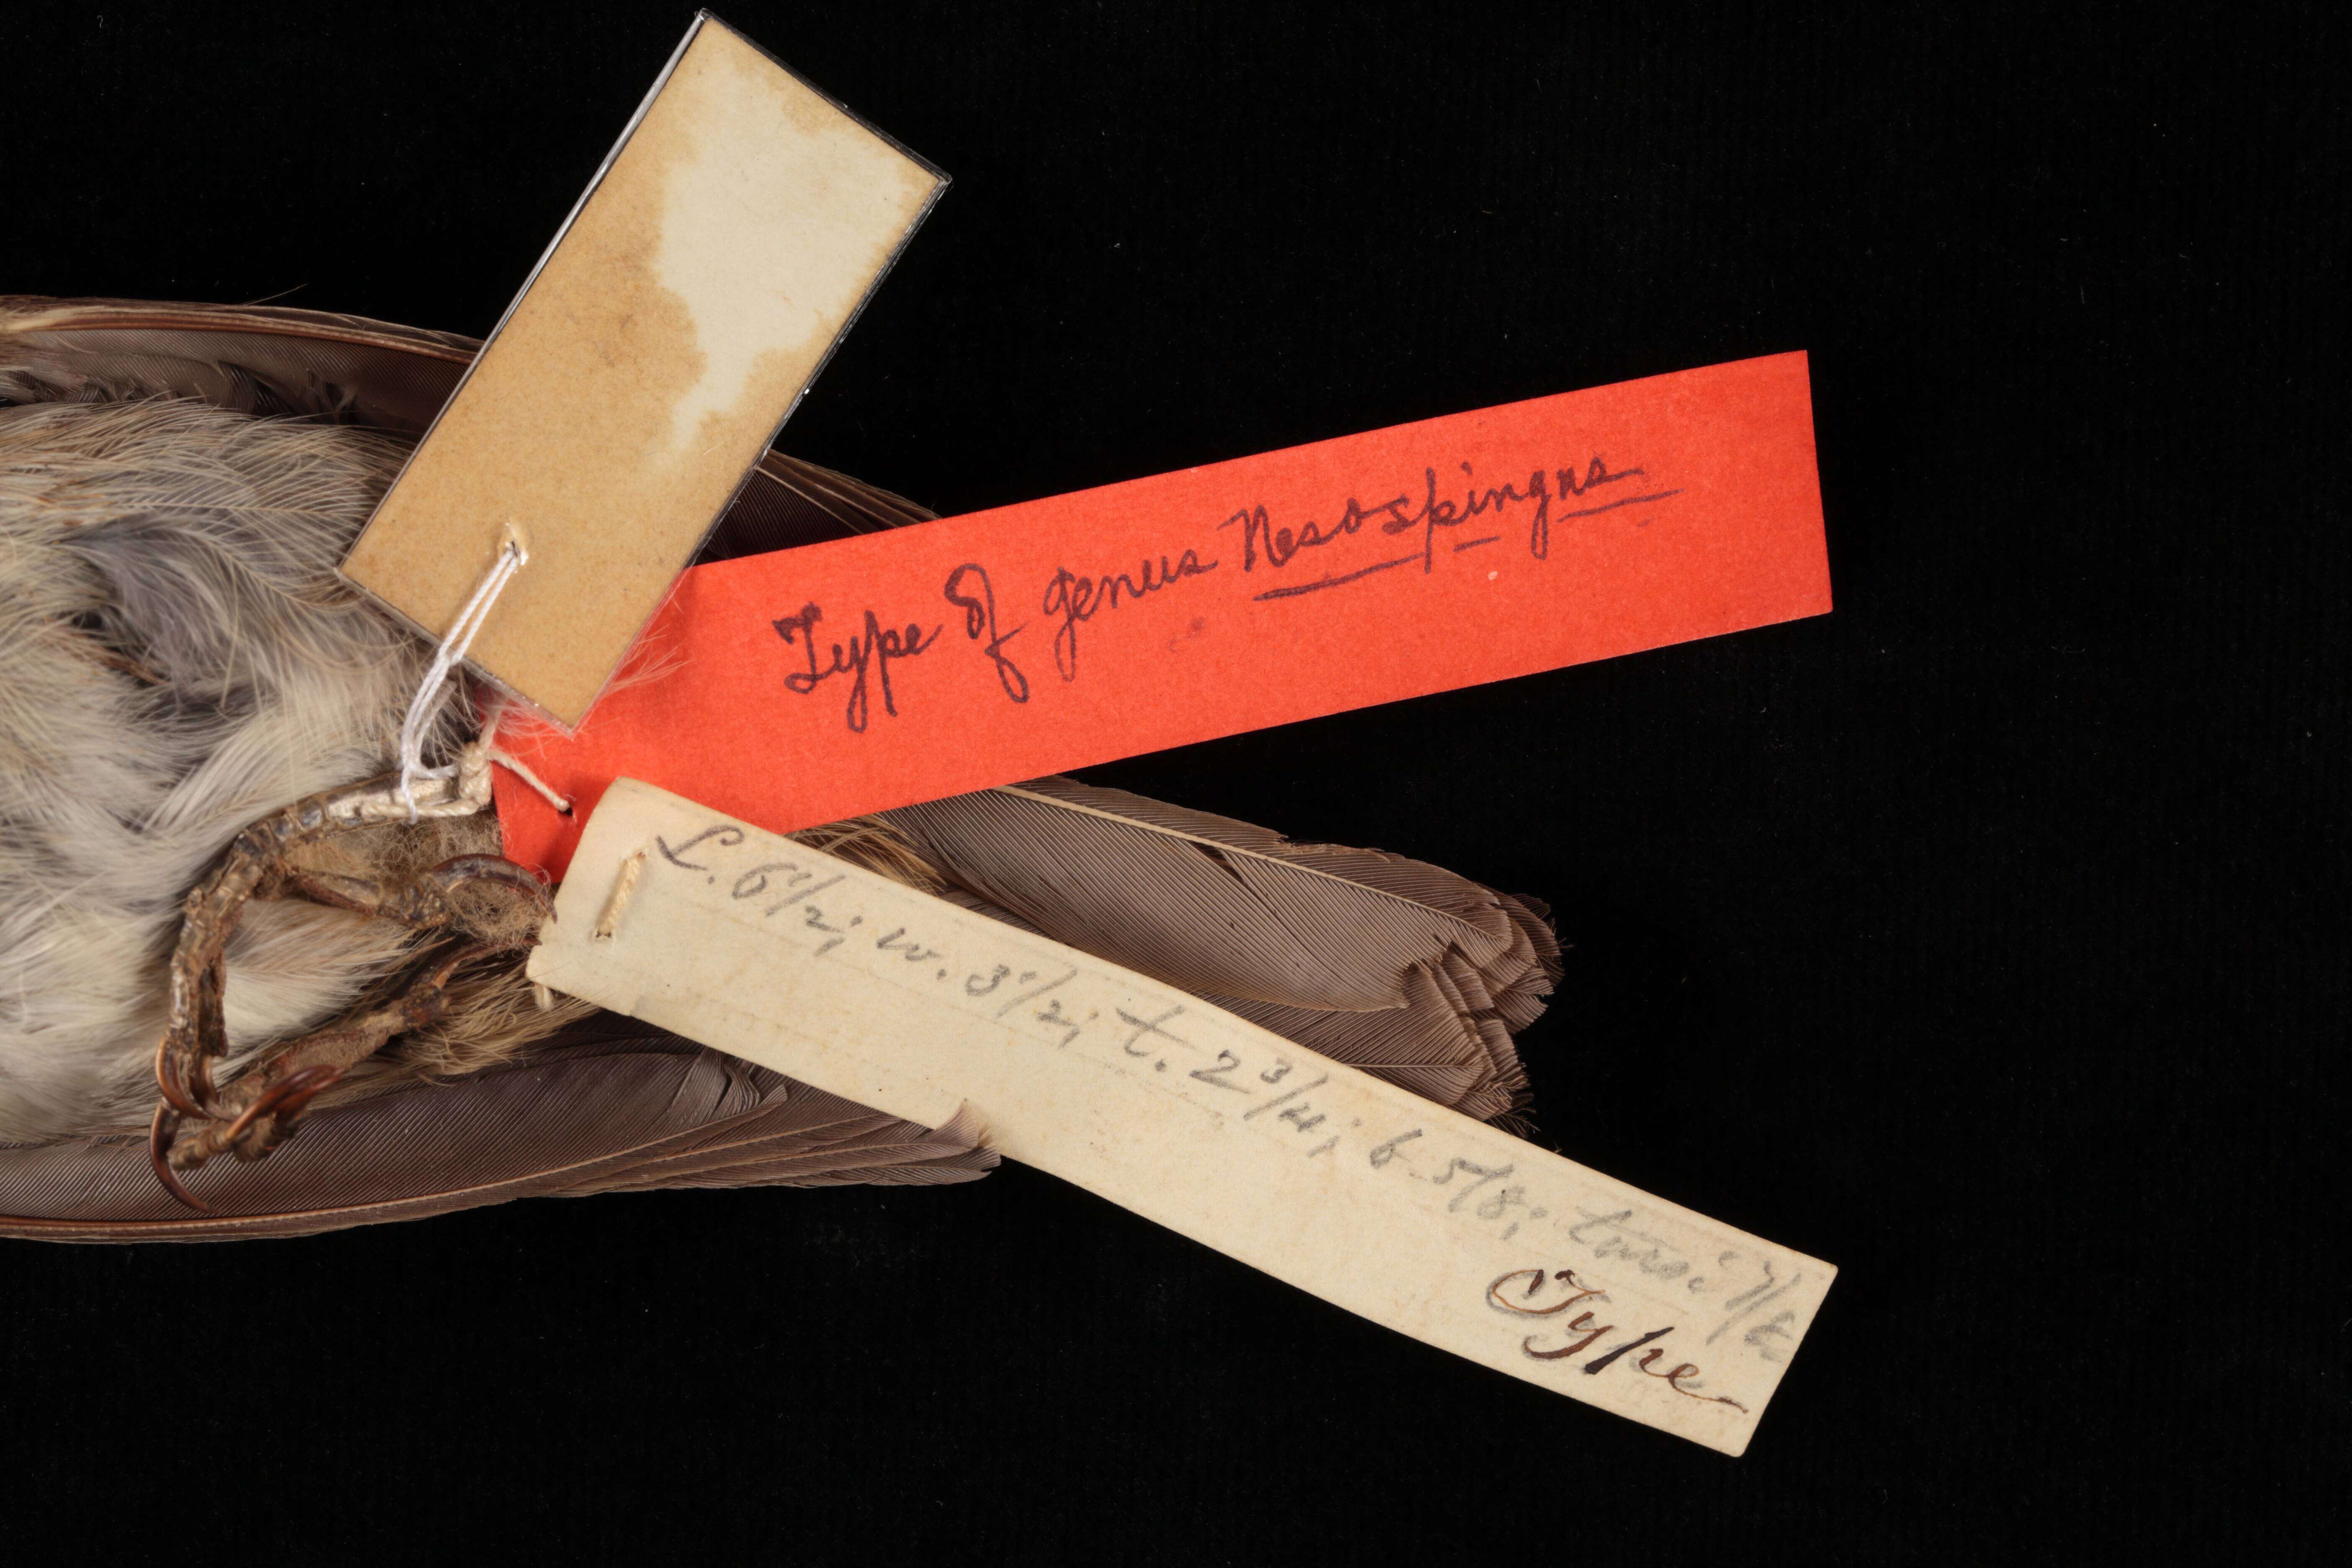 Type of genus Nesospingus
L. 6 1/2; w. 3 1/2; t. 2 3/4; b 5/8; tarsi 7/8
Type